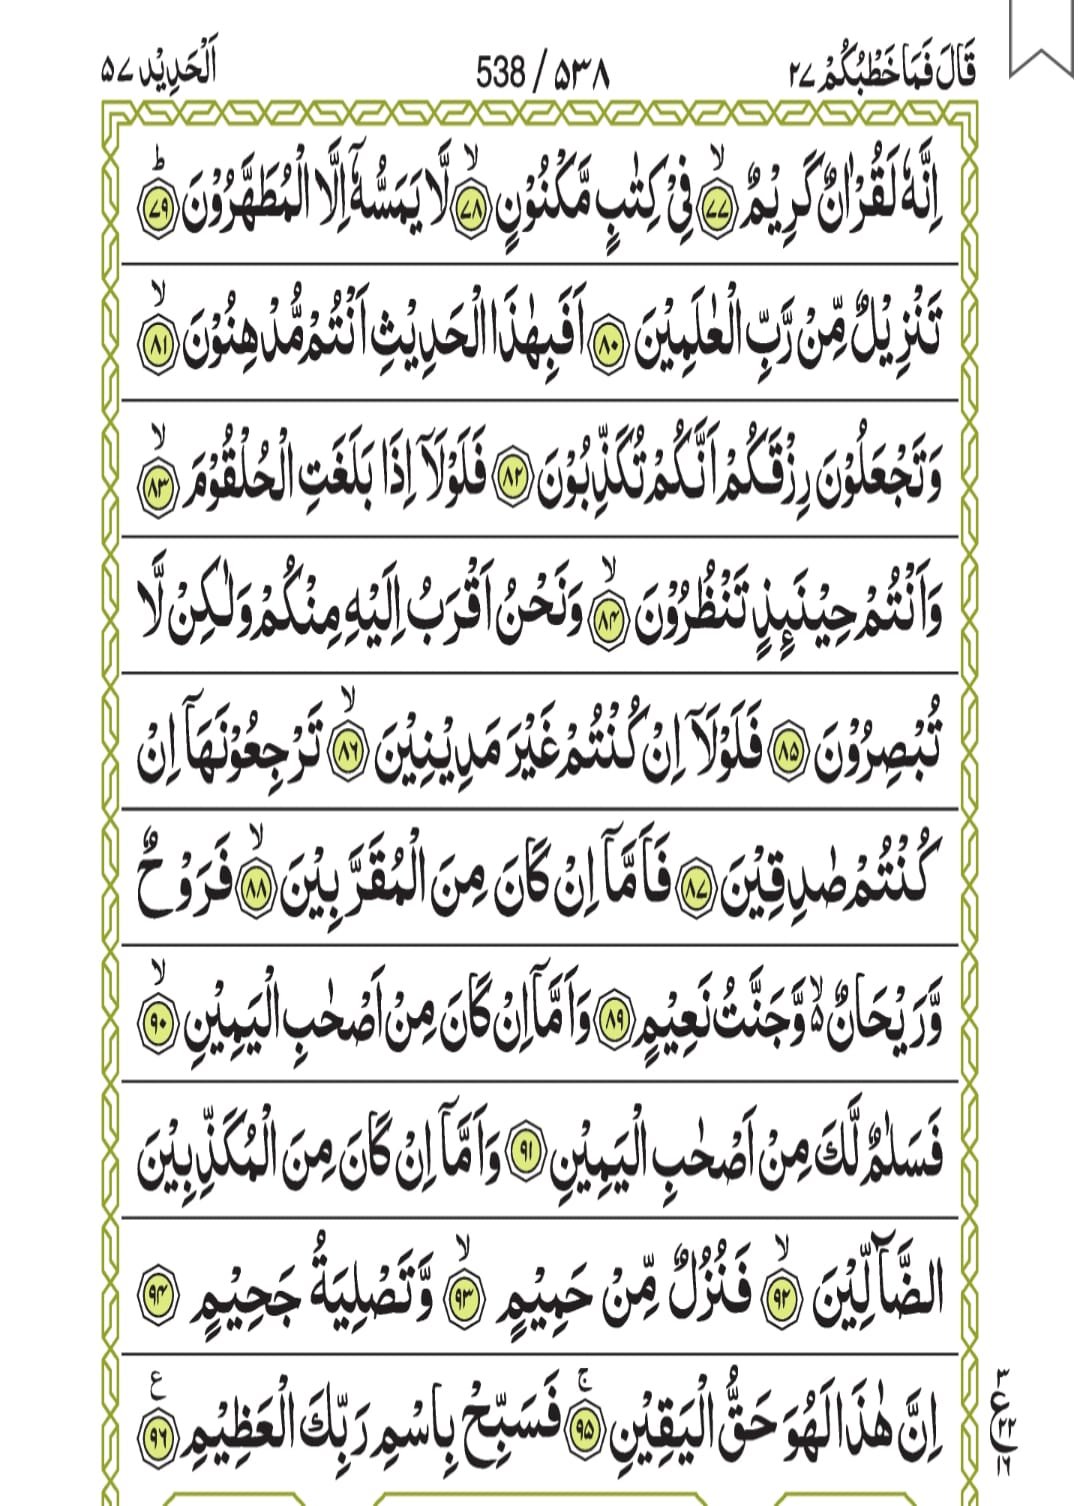 قَالَ فَمَا خَطْبُكُمْ ۲۷ 538 / ۵۳۸ اَلْحَدِيْد ۵۷
اِنَّهٗ لَقُرْاٰنٌ كَرِيْمٌ ۙ‏﴿۷۷﴾ فِىْ كِتٰبٍ مَّكْنُوْنٍ ۙ‏﴿۷۸﴾ لَّا يَمَسُّهٗۤ اِلَّا الْمُطَهَّرُوْنَ ؕ‏﴿۷۹﴾
تَنْزِيْلٌ مِّنْ رَّبِّ الْعٰلَمِيْنَ ﴿۸۰﴾ اَفَبِهٰذَا الْحَدِيْثِ اَنْتُمْ مُّدْهِنُوْنَ ۙ‏﴿۸۱﴾
وَتَجْعَلُوْنَ رِزْقَكُمْ اَنَّكُمْ تُكَذِّبُوْنَ ﴿۸۲﴾ فَلَوْلَاۤ اِذَا بَلَغَتِ الْحُلْقُوْمَ ۙ‏﴿۸۳﴾
وَاَنْتُمْ حِيْنَئِذٍ تَنْظُرُوْنَ ۙ‏﴿۸۴﴾ وَنَحْنُ اَقْرَبُ اِلَيْهِ مِنْكُمْ وَلٰكِنْ لَّا
تُبْصِرُوْنَ ﴿۸۵﴾ فَلَوْلَاۤ اِنْ كُنْتُمْ غَيْرَ مَدِيْنِيْنَ ۙ‏﴿۸۶﴾ تَرْجِعُوْنَهَاۤ اِنْ
كُنْتُمْ صٰدِقِيْنَ ﴿۸۷﴾ فَاَمَّاۤ اِنْ كَانَ مِنَ الْمُقَرَّبِيْنَ ۙ‏﴿۸۸﴾ فَرَوْحٌ
وَّرَيْحَانٌ ۙ۬ وَّجَنَّتُ نَعِيْمٍ ﴿۸۹﴾ وَاَمَّاۤ اِنْ كَانَ مِنْ اَصْحٰبِ الْيَمِيْنِ ۙ‏﴿۹۰﴾
فَسَلٰمٌ لَّكَ مِنْ اَصْحٰبِ الْيَمِيْنِ ﴿۹۱﴾ وَاَمَّاۤ اِنْ كَانَ مِنَ الْمُكَذِّبِيْنَ
الضَّآلِّيْنَ ۙ‏﴿۹۲﴾ فَنُزُلٌ مِّنْ حَمِيْمٍ ۙ‏﴿۹۳﴾ وَّتَصْلِيَةُ جَحِيْمٍ ﴿۹۴﴾
اِنَّ هٰذَا لَهُوَ حَقُّ الْيَقِيْنِ ۚ‏﴿۹۵﴾ فَسَبِّحْ بِاسْمِ رَبِّكَ الْعَظِيْمِ ﴿۹۶﴾ ع
۳
ع ۲۲
۱۶